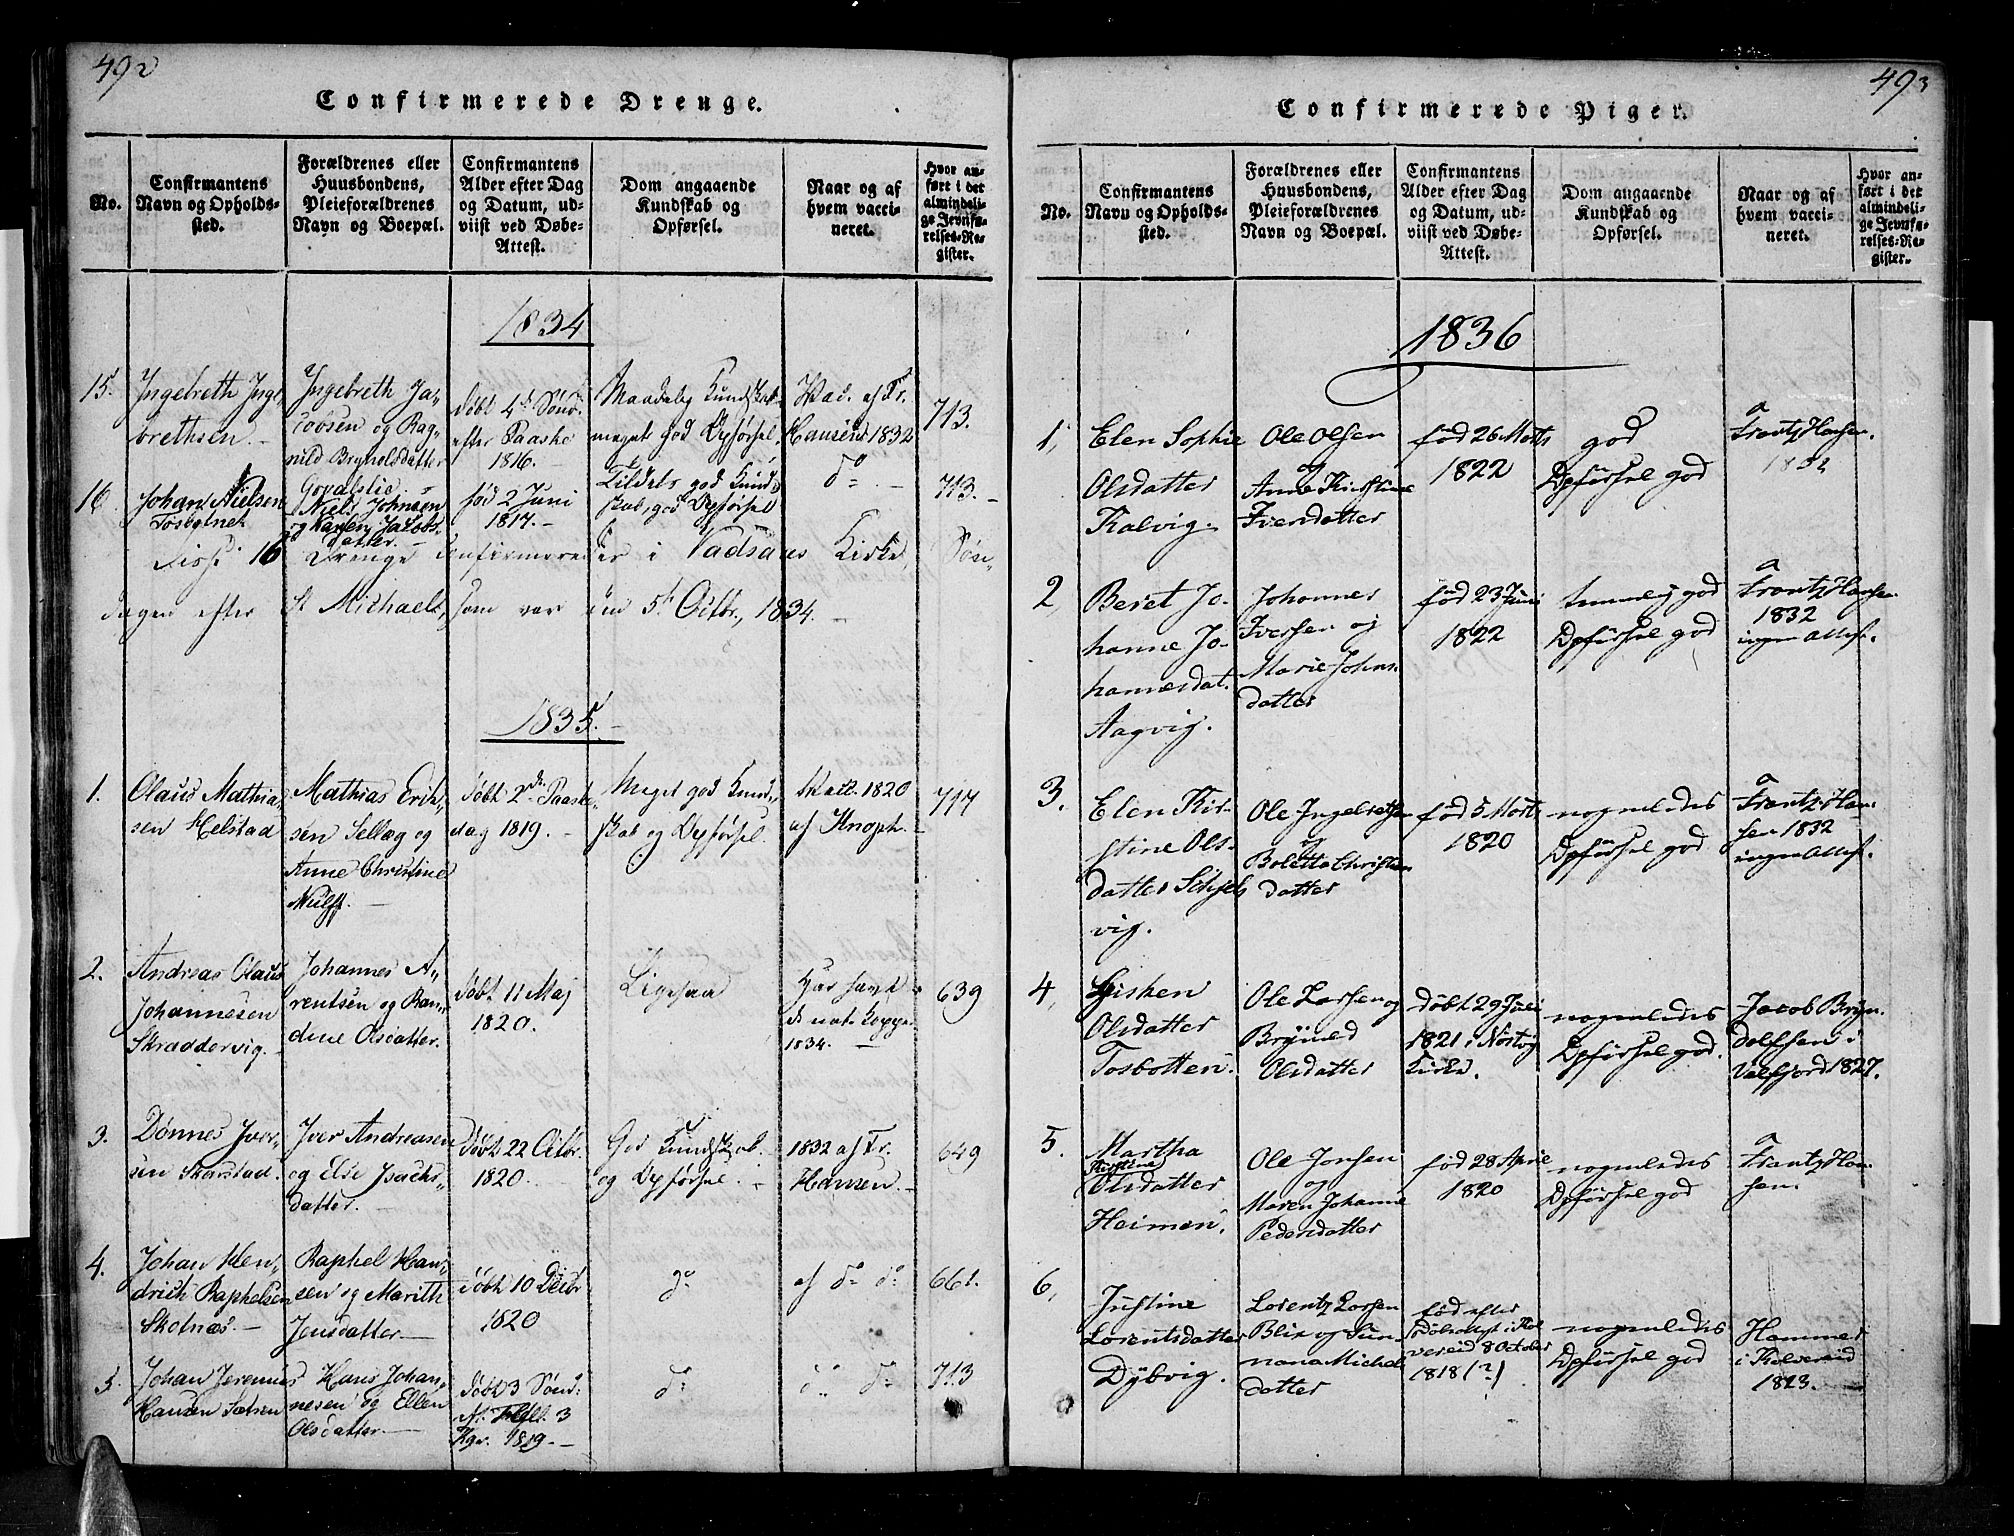 492
Confirmerede Drenge.
No.
Confirmantens
Navn og Opholds-
sted.
Forældrenes eller
Huusbondens,
Pleieforældrenes
Navn og Boepæl.
Confirmantens
Alder efter Dag
og Datum, ud-
viist ved Døbe-
Attest.
Dom angaaende
Kundskab og
Opførsel.
Naar og af
hvem vacci-
neret.
Hvor an-
ført i det
almindeli-
ge Jevnfø-
relses-Re-
gister.
1834
15.
Ingebreth Inge-
brethsen.
Ingebreth Ja-
cobsen og Rag-
nild Brynolsdatter
døbt 4de Sønd.
efter Paaske
1816.
Maadelig Kundskab
meget god Opførsel.
Vac. af Fr.
Hansen 1832
713.
16.
Johan Nielsen
Tosbotnet
Niels Johnsen
og Karen Jacobs-
datter.
fød 2 Juni
1817.
god Kund-
skab, god Opførsel
do
713.
Disse 16 Drenge confirmerede i Vadsaas Kirke Søn-
dagen efter St Michaels, som var den 5te Octbr. 1834.
1835.
1.
Olaus Mathia-
sen Helstad
Mathias Erik-
sen Sellæg og
Anne Christine
døbt 2den Paaske-
dag 1819.
Meget god Kund-
skab og Opførsel.
Vacc. 1820
af Knoph.
717
2.
Andreas Olaus
Johannesen
Skraddervig.
Johannes A-
rentsen og Ran-
dine Olsdatter.
døbt 11 Maj
1820.
Ligesaa
Har havt
de nat. Kopper
1834.
639
3.
Dønnes Iver-
sen Skarstad.
Iver Andreasen
og Else Isachs-
datter.
døbt 22 Octbr.
1820.
God Kundskab
og Opførsel.
1832 af Fr.
Hansen
649
4.
Johan Hen-
drich Raphelsen
Skotnæs.
Raphel Han-
sen og Marith
Jensdatter
døbt 10 Decbr
1820
do
af do do
661.
5.
Johan Jeremias
Hansen Sætren
Hans Johan-
nesen og Ellen
Olsdatter
døbt 3 Sønd.
1819.
do
do do
713
493
Confirmerede Piger.
No.
Confirmantens
Navn og Opholds-
sted.
Forældrenes eller
Huusbondens,
Pleieforældrenes
Navn og Boepæl.
Confirmantens
Alder efter Dag
og Datum, ud-
viist ved Døbe-
Attest.
Dom angaaende
Kundskab og
Opførsel.
Naar og af
hvem vacci-
neret.
Hvor an-
ført i det
almindeli-
ge Jevnfø-
relses-Re-
gister.
1836
1,
Elen Sophie
Olsdatter
Kalvig.
Ole Olsen
og
Anne Kirstine
Iversdatter
fød 26 Marts
1822
god
Opførsel god
a
Frantz Hansen.
1832
2,
Beret Jo-
hanne Jo-
hannesdat.
Aagvig.
Johannes
Iversen og
Marie Johns-
datter
fød 23 Juni
1822
temmelig god
Opførsel god
a
Frantz Hansen.
1832
ingen Attest.
3.
Elen Kir-
stine Ols-
datter
vig.
Ole Ingebretsen
og
Boletta Christens
datter
fød 5 Marts
1820
nogenledes
Opførsel god
a
Frantz Han-
sen 1832
ingen Attest.
4,
Gisken
Olsdatter
Tosbotten.
Ole Larsen og
Brynild
Olsdatter
døbt 29 Juli
1821 i Nøstvig
Kirke.
nogenledes
Opførsel god.
Jacob Bryn-
dolfsen i
Velfjord 1827.
5.
Martha
Kirstine
Olsdatter
Heimen.
Ole Jonsen
og
Maren Johanne
Pedersdatter
fød 28 April
1820
nogenledes
Opførsel god
a
Frantz Han-
sen.
6,
Justine
Lorentsdatter
Dybvig.
Lorentz Larsen
Blix og Sun-
nana Michel
datter
fød efter
Døbeattest i Kol
vereid 8 October
1818 (?)
nogenledes
Opførsel god
Hammer
i Kolvereid
1823.